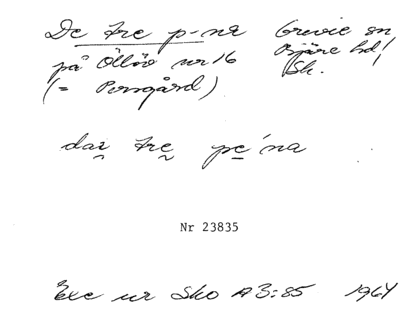 De tre p-na Grevie sn
på Öllöv nr 16 Bjäre hd
(= Porsgård) Sk.
dar tre pe'na
Nr 23835
Exc ur Sko A3:85 1964